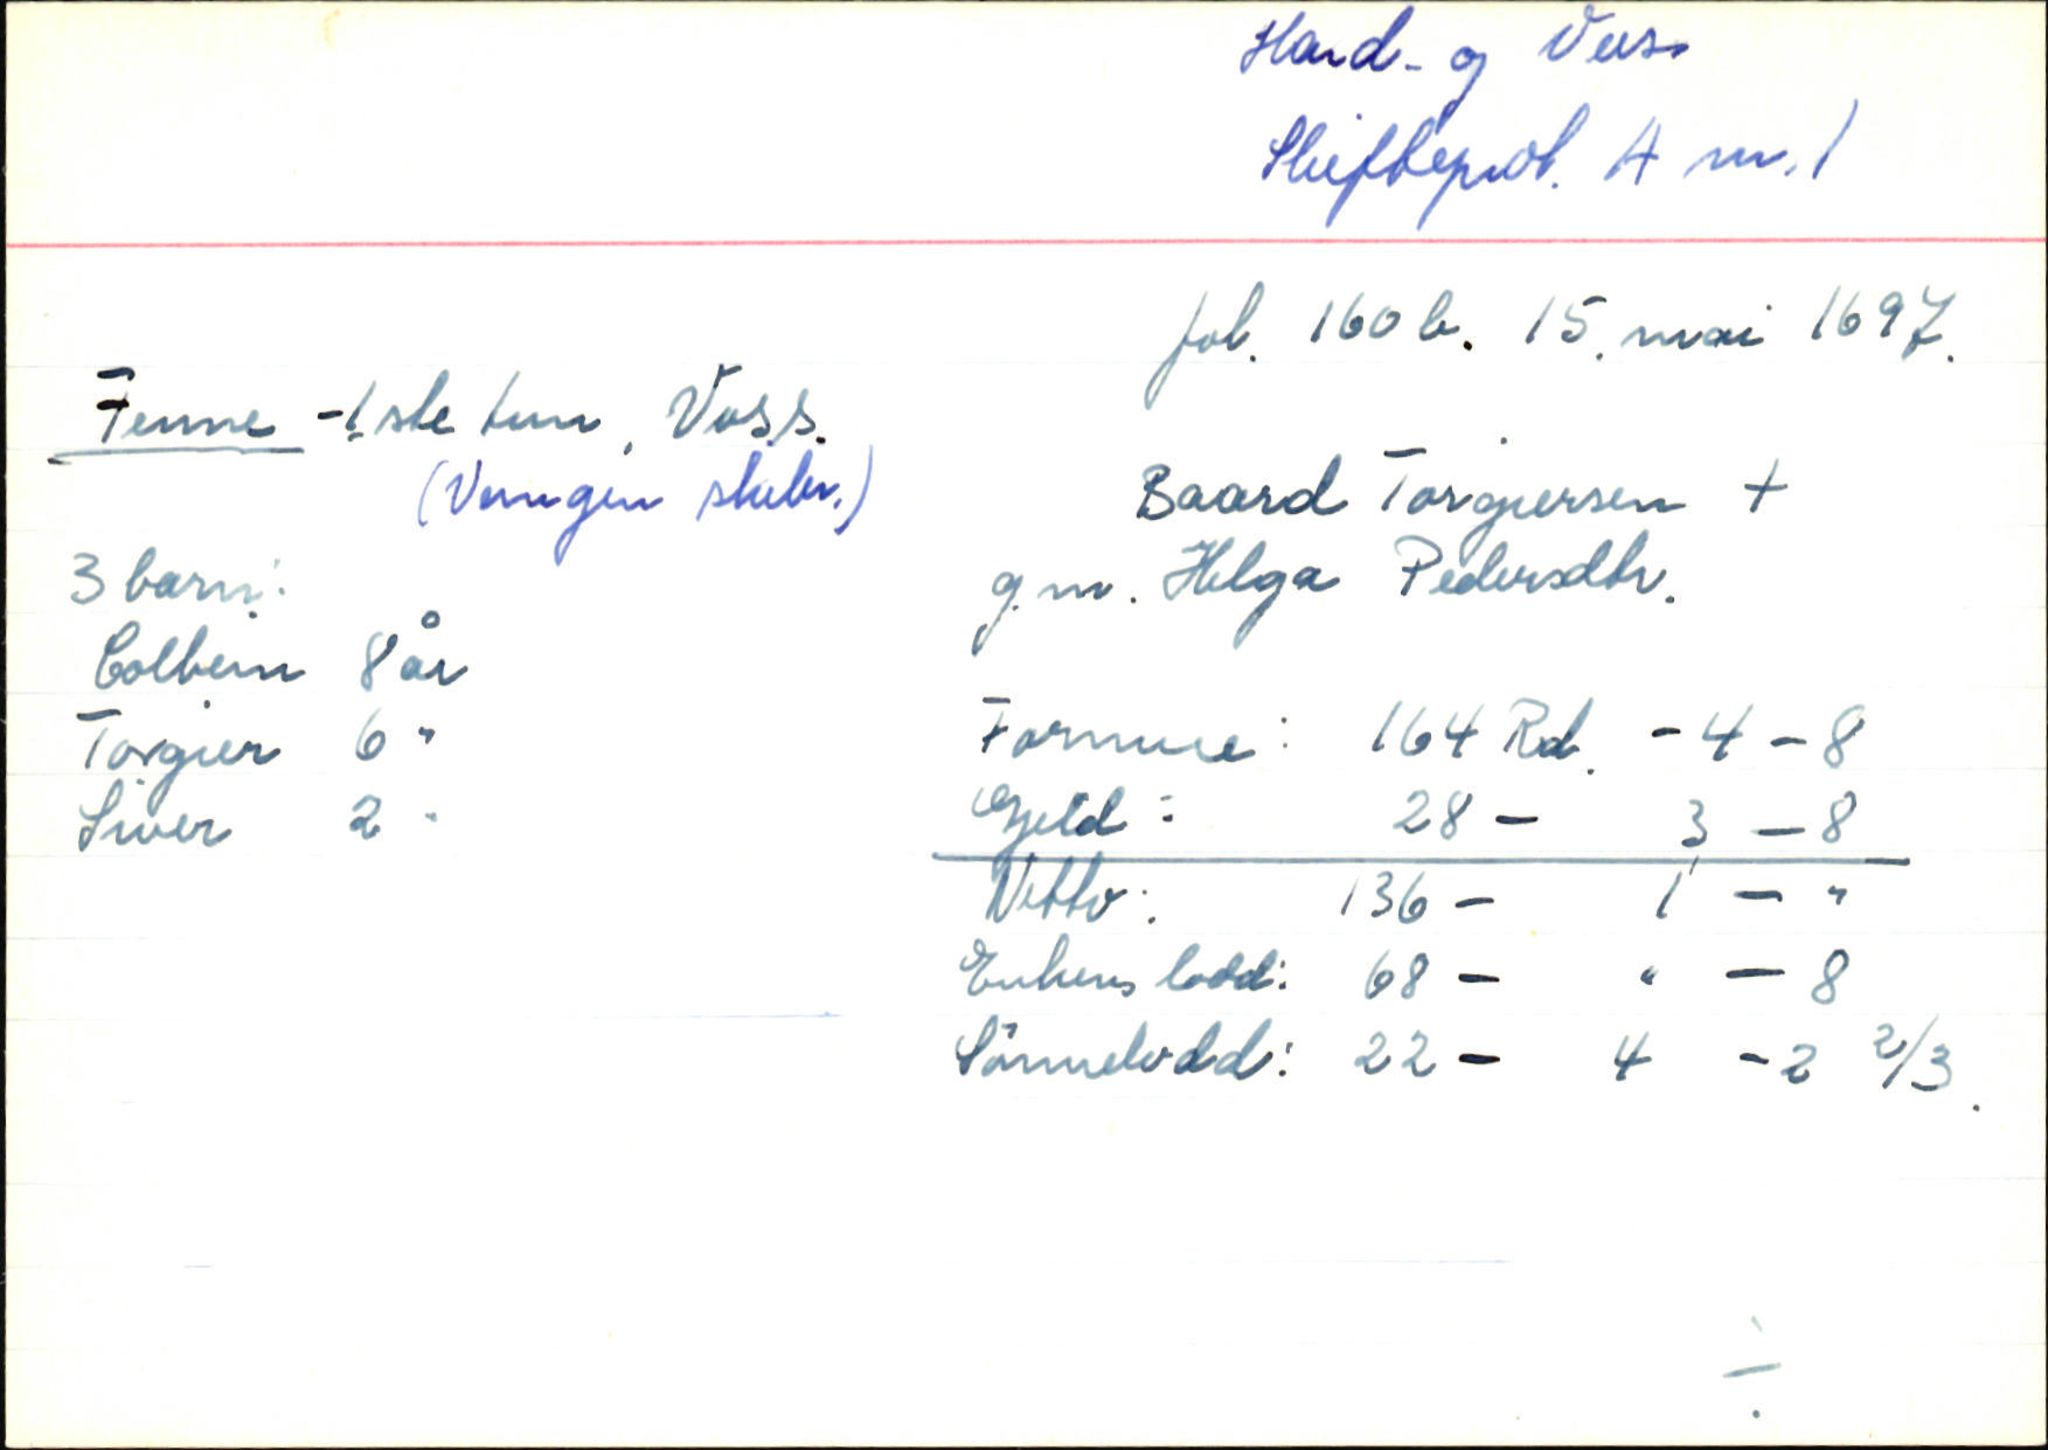 Hard- og Voss
Skifteprot. A nr. 1
fol. 160 b. 15. mai 1697.
Finne - 1ste tun, Voss.
(Vangen skibr.)
Baard Torgiersen +
g.m. Helga Pedersdtr.
3 barn:
Colbein 8 år
Torgier 6 "
Siver 2 "
Formue: 164 Rd. - 4 - 8
Gjeld: 28 - 3 - 8
Netto: 136 - 1 - "
Enkens lodd: 68 - " - 8
Sönnelodd: 22 - 4 - 2 2/3.